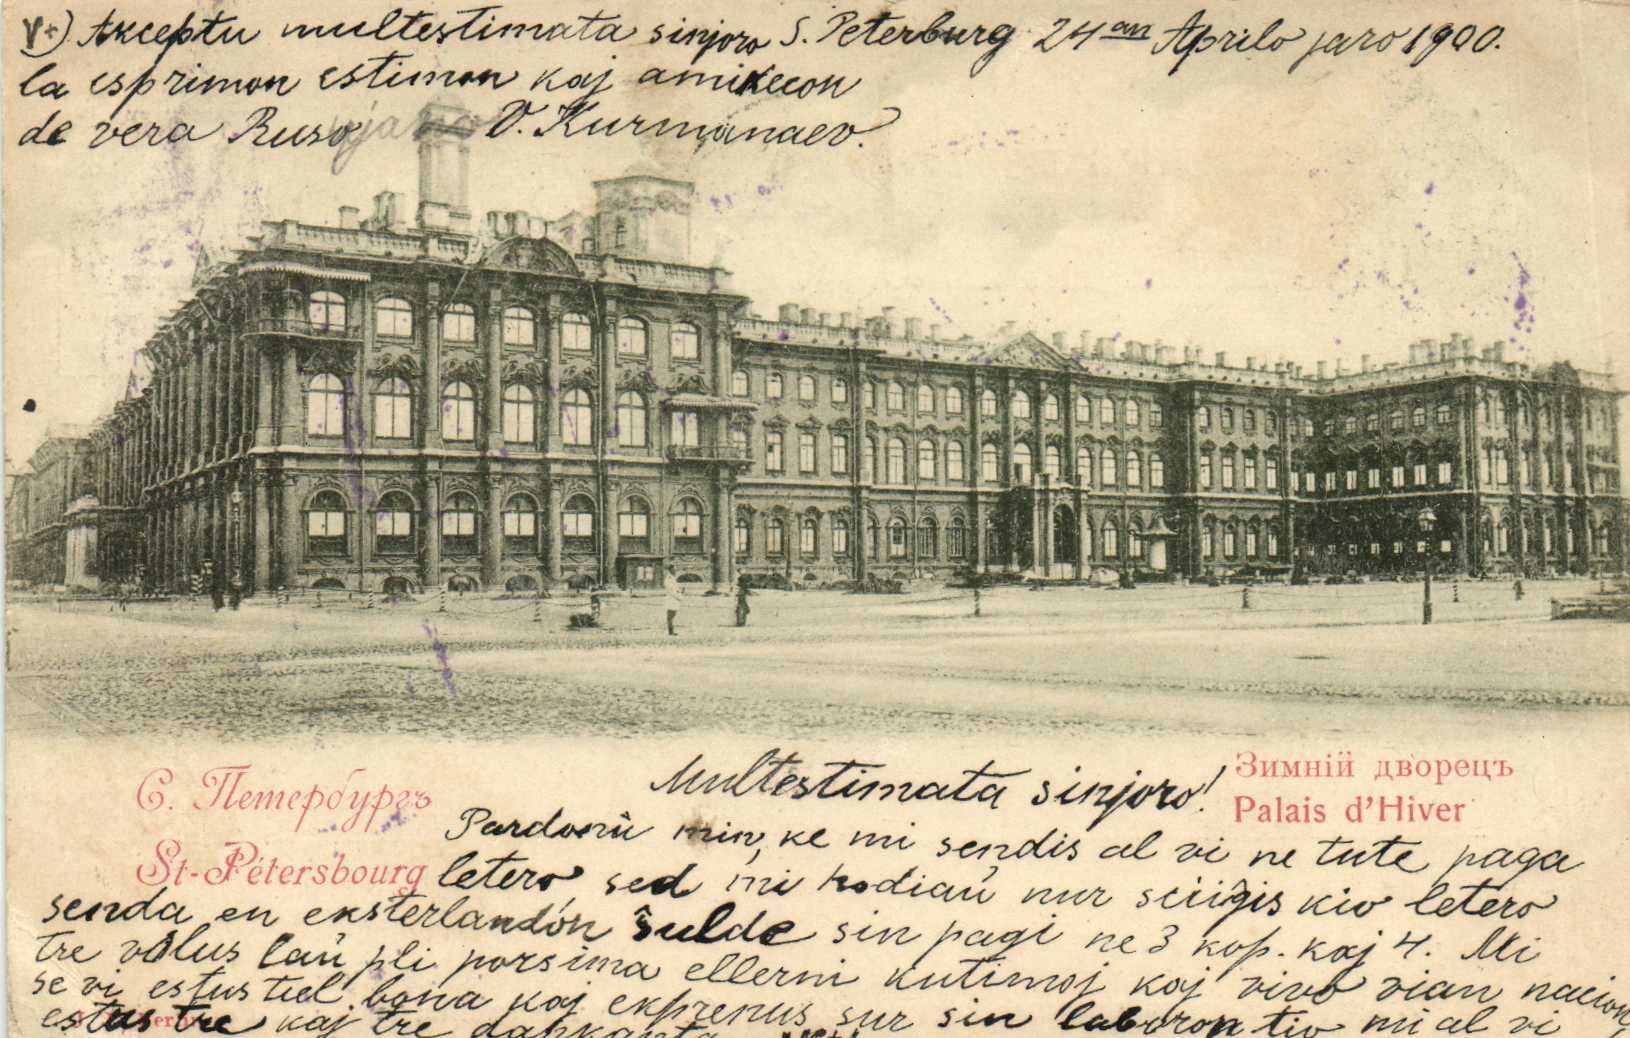 Akceptu multestimata sinjoro S. Peterburg 24an Aprilo jaro 1900.
la esprimon estimon kaj amikecon
de vera Ruso V. Kurmanaev.
С. Петербургъ
St-Pétersbourg
Зимній дворецъ
Palais d'Hiver
Multestimata sinjoro!
Pardonu min, ke mi sendis al vi ne tute paga
letero sed mi hodiaŭ nur sciiĝis kio letero
senda en eksterlandon ŝulde sin pagi ne 3 kop. kaj 4. Mi
tre volus laŭ pli porsima ellerni kutimoj kaj vivo vian nacion,
se vi estus tiel bona kaj ekprenus sur sin laboron tio mi al vi
estus tre kaj tre dankanta